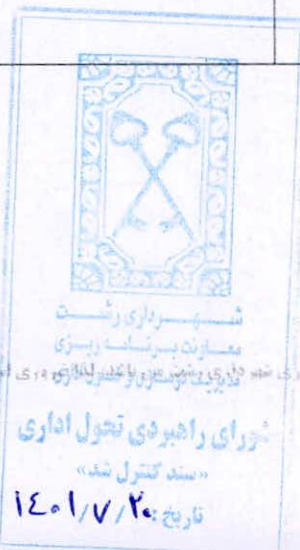 شهرداری رشت
معاونت برنامه ریزی
شورای راهبردی تحول اداری
«سند کنترل شد»
تاریخ: ۱۴۰۱/۷/۲۰